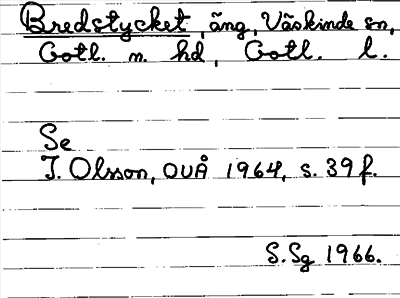 Bredstycket, äng, Väskinde sn,
Gotl. n. hd, Gotl. l.
Se
I. Olsson, OUÅ 1964, s. 39 f.
S.Sg 1966.